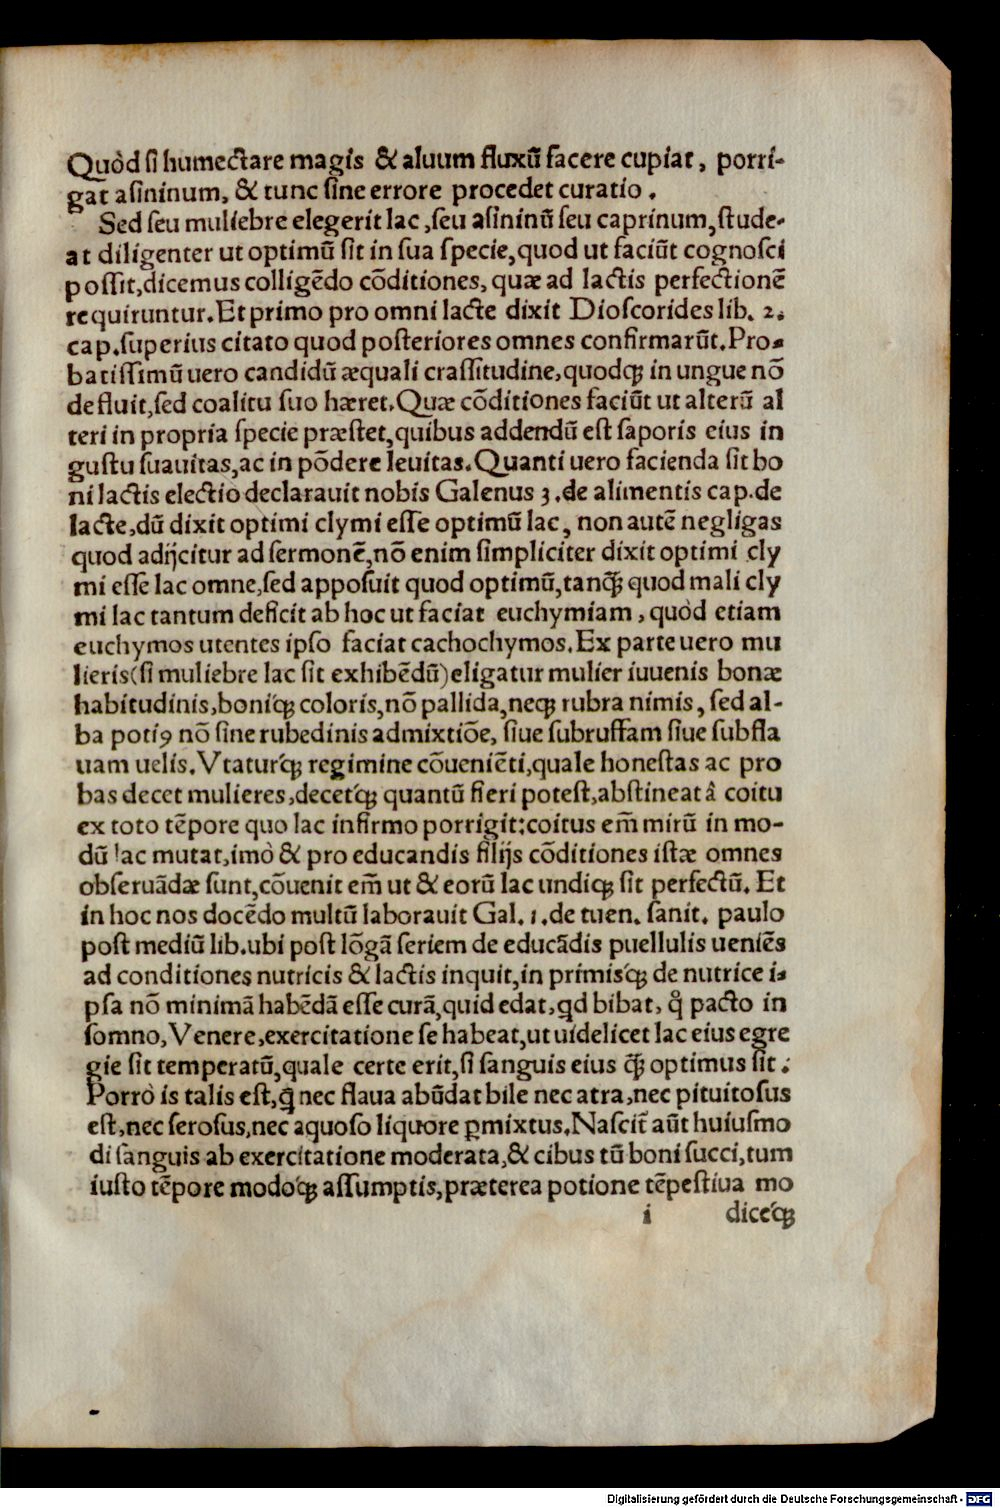 Quòd ſi humectare magis & aluum fluxũ facere cupiat, porri-
gat aſininum, & tunc ſine errore procedet curatio.
Sed ſeu muliebre elegerit lac, ſeu aſininũ ſeu caprinum, ſtude-
at diligenter ut optimũ ſit in ſua ſpecie, quod ut faciũt cognoſci
poſſit, dicemus colligẽdo cõditiones, quæ ad lactis perfectionẽ
requiruntur. Et primo pro omni lacte dixit Dioſcorides lib. 2.
cap. ſuperius citato quod poſteriores omnes confirmarũt. Pro-
batiſſimũ uero candidũ æquali craſſitudine, quodq́ꝫ in ungue nõ
defluit, ſed coalitu ſuo hæret. Quæ cõditiones faciũt ut alterũ al
teri in propria ſpecie præſtet, quibus addendũ eſt ſaporis eius in
guſtu ſuauitas, ac in põdere leuitas. Quanti uero facienda ſit bo
ni lactis electio declarauit nobis Galenus 3. de alimentis cap. de
lacte, dũ dixit optimi clymi eſſe optimũ lac, non autẽ negligas
quod adijcitur ad ſermonẽ, nõ enim ſimpliciter dixit optimi cly
mi eſſe lac omne, ſed appoſuit quod optimũ, tanq̃ꝫ quod mali cly
mi lac tantum deficit ab hoc ut faciat euchymiam, quòd etiam
euchymos utentes ipſo faciat cachochymos. Ex parte uero mu
lieris (ſi muliebre lac ſit exhibẽdũ) eligatur mulier iuuenis bonæ
habitudinis, boniq́ꝫ coloris, nõ pallida, neqꝫ rubra nimis, ſed al-
ba potiꝰ nõ ſine rubedinis admixtiõe, ſiue ſubruffam ſiue ſubfla
uam uelis. Vtaturq́ꝫ regimine cõueniẽti, quale honeſtas ac pro
bas decet mulieres, decetq́ꝫ quantũ fieri poteſt, abſtineat â coitu
ex toto tẽpore quo lac infirmo porrigit: coitus em̃ mirũ in mo-
dũ lac mutat, imò & pro educandis filijs cõditiones iſtæ omnes
obſeruãdæ ſunt, cõuenit em̃ ut & eorũ lac undiqꝫ ſit perfectũ. Et
in hoc nos docẽdo multũ laborauit Gal. 1. de tuen. ſanit. paulo
poſt mediũ lib. ubi poſt lõgã ſeriem de educãdis puellulis ueniẽs
ad conditiones nutricis & lactis inquit, in primisq́ꝫ de nutrice i-
pſa nõ minimã habẽdã eſſe curã, quid edat, qd bibat, q̊ pacto in
ſomno, Venere, exercitatione ſe habeat, ut uidelicet lac eius egre
gie ſit temperatũ, quale certe erit, ſi ſanguis eius q̃ꝫ optimus ſit:
Porrò is talis eſt, q̃ nec flaua abũdat bile nec atra, nec pituitoſus
eſt, nec ſeroſus, nec aquoſo liquore ꝑmixtus. Naſcit̃ aũt huiuſmo
di ſanguis ab exercitatione moderata, & cibus tũ boni ſucci, tum
iuſto tẽpore modoq́ꝫ aſſumptis, præterea potione tẽpeſtiua mo
i diceq́ꝫ
Digitalisierung gefördert durch die Deutsche Forschungsgemeinschaft - DFG